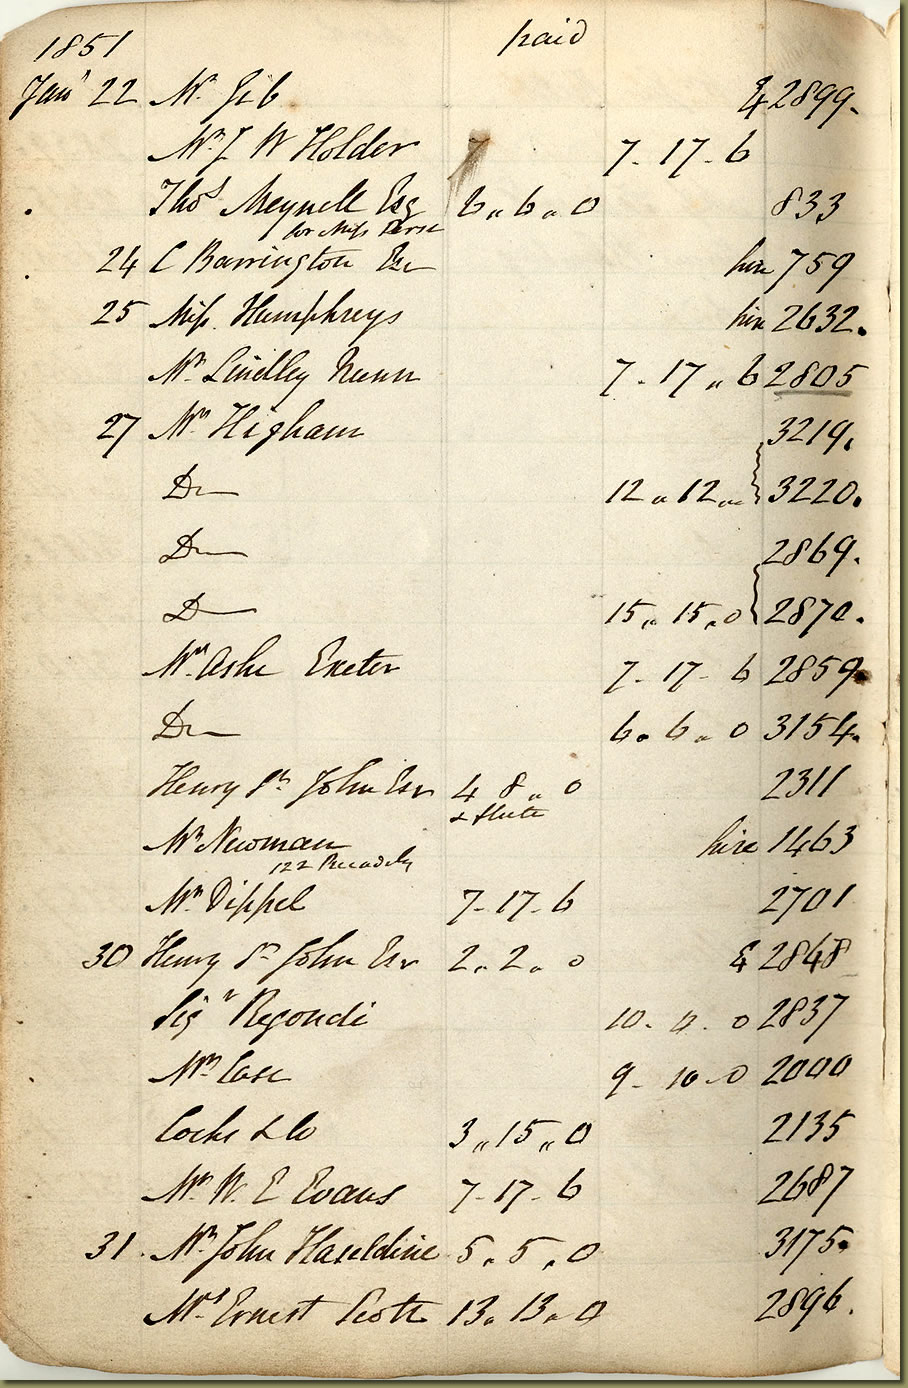 1851 paid
Jany 22 Mr Gib & 2899.
Mr J W Holder 7 - 17 - 6
Thos Meynell Esq 6 " 6 " 0 833
for Miss
24 C Barrington Esq hire 759
25 Miss Humphreys hire 2632.
Mr Lindley Nunn 7 - 17 " 6 2805
27 Mr Higham 3219.
Do 12 " 12 " 3220.
Do 2869.
Do 15 " 15 " 0 2870.
Mr Ashe Exeter 7 - 17 - 6 2859.
Do 6 " 6 " 0 3154.
Henry St John Esq 4 8 " 0 2311
& flute
Mr Newman hire 1463
122 Piccadily
Mr Dippel 7 - 17 - 6 2701
30 Henry St John Esq 2 " 2 " 0 & 2848
Sigr Regondi 10 - 0 - 0 2837
Mr Case 9 - 10 - 0 2000
Cocks & Co 3 " 15 " 0 2135
Mr W. E Evans 7 - 17 - 6 2687
31. Mr John Haseldine 5 " 5 " 0 3175.
Mrs Ernest Scott 13 " 13 " 0 2896.